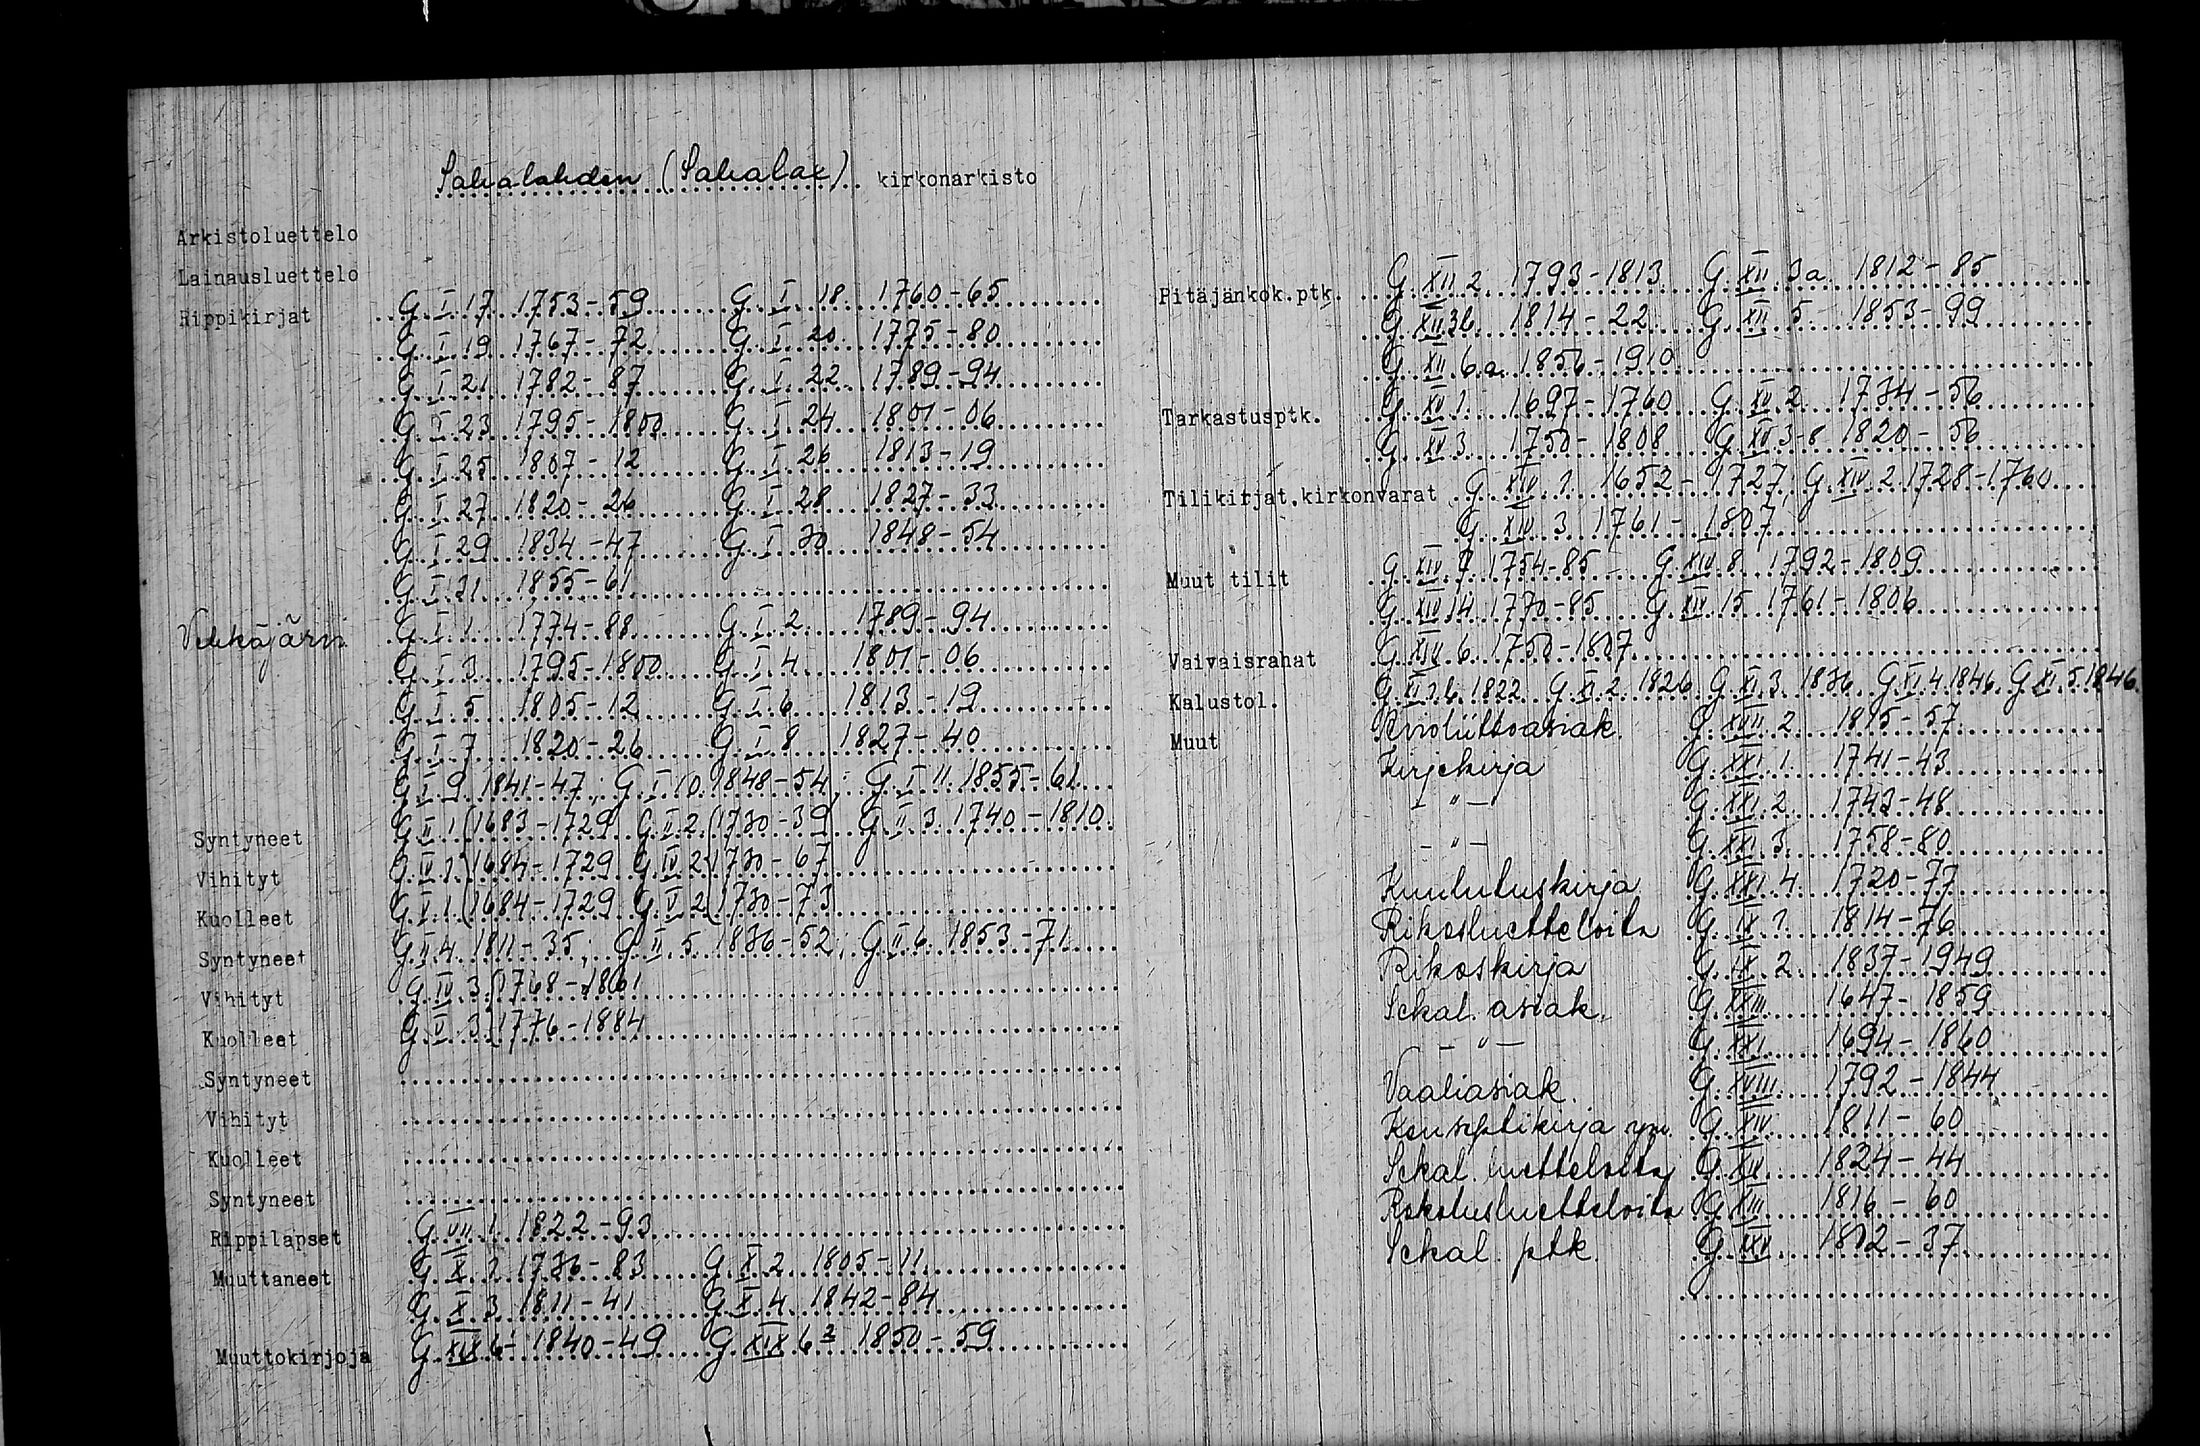 Sahalahden (Sahalax) kirkonarkisto
Arkistoluettelo
Lainausluettelo
Rippikirjat G. I. 17. 1753-59 G. I. 18. 1760-65
G. I. 19 1767-72 G. I. 20. 1775-80
G. I. 21 1782-87 G. I. 22. 1789-94
G. I. 23 1795-1800 G. I. 24 1801-06
G. I. 25 1807-12 G. I. 26 1813-19
G. I. 27 1820-26 G. I. 28 1827-33
G. I. 29 1834-47 G. I. 30 1848-54
G. I. 31 1855-61
Vehkajärvi G. I. 1. 1774-88 G. I. 2. 1789-94
G. I. 3 1795-1800 G. I. 4. 1801-06
G. I. 5 1805-12 G. I. 6 1813-19
G. I. 7 1820-26 G. I. 8 1827-40
G. I. 9 1841-47; G. I. 10. 1848-54; G. I. 11. 1855-61
Syntyneet G. II. 1 (1683-1729 G. II. 2. (1730-39 G. II. 3. 1740-1810.
Vihityt G. IV. 1 (1684-1729 G. IV. 2 (1730-67
Kuolleet G. V. 1 (1684-1729 G. V. 2 (1730-73
Syntyneet G. II. 4. 1811-35; G. II. 5. 1836-52; G. II. 6. 1853-71
Vihityt G. IV. 3. (1768-1861
Kuolleet G. V. 3. (1776-1884
Syntyneet
Vihityt
Kuolleet
Syntyneet
Rippilapset G. VII. 1. 1822-93
Muuttaneet G. X. 1 1736-83 G. X. 2. 1805-11
G. X. 3 1811-41 G. X. 4 1842-84
Muuttokirjoja G. XIX 6 1840-49 G. XIX 6 2 1850-59
Pitäjänkok.ptk. G. XII 2. 1793-1813 G. XII 3a. 1812-85
G. XII 3b. 1814-22 G. XII 5 1853-99
G. XII. 6a. 1856-1910
Tarkastusptk. G. XV 1. 1697-1760 G. XV. 2. 1734-56
G. XV 3. 1750-1808 G. XV 3-8 1820-56
Tilikirjat, kirkonvarat G. XIV. 1. 1652-1727, G. XIV. 2. 1728-1760
G. XIV 3 1761-1807
Muut tilit G. XIV. 7 1754-85 G. XIV 8. 1792-1809
G. XIV 14. 1770-85 G. XIV. 15 1761-1806
Vaivaisrahat G. XIV. 6. 1750-1807
Kalustol. G. XI. 1b. 1822 G. XI. 2. 1826 G. XI. 3. 1836 G. XI. 4. 1846. G. XI. 5. 1846.
Muut Avioliittoasiak. G. XVII. 2. 1815-57
Kirjekirja G. XXI. 1. 1741-43
- " - G. XXI. 2. 1743-48
- " - G. XXI. 3. 1758-80
Kuulutuskirja G. XXI. 4. 1720-77
Rikosluetteloita G. IX. 1. 1814-76
Rikoskirja G. IX. 2. 1837-1949
Sekal. asiak. G. XXIII. 1647-1859
- " - G. XXI. 1694-1860
Vaaliasiak. G. XVIII. 1792-1844
Konseptikirja ym. G. XIV. 1811-60
Sekal. luetteloita G. XV. 1824-44
Rokotusluetteloita G. XIII. 1816-60
Sekal. ptk. G. XXV. 1802-37